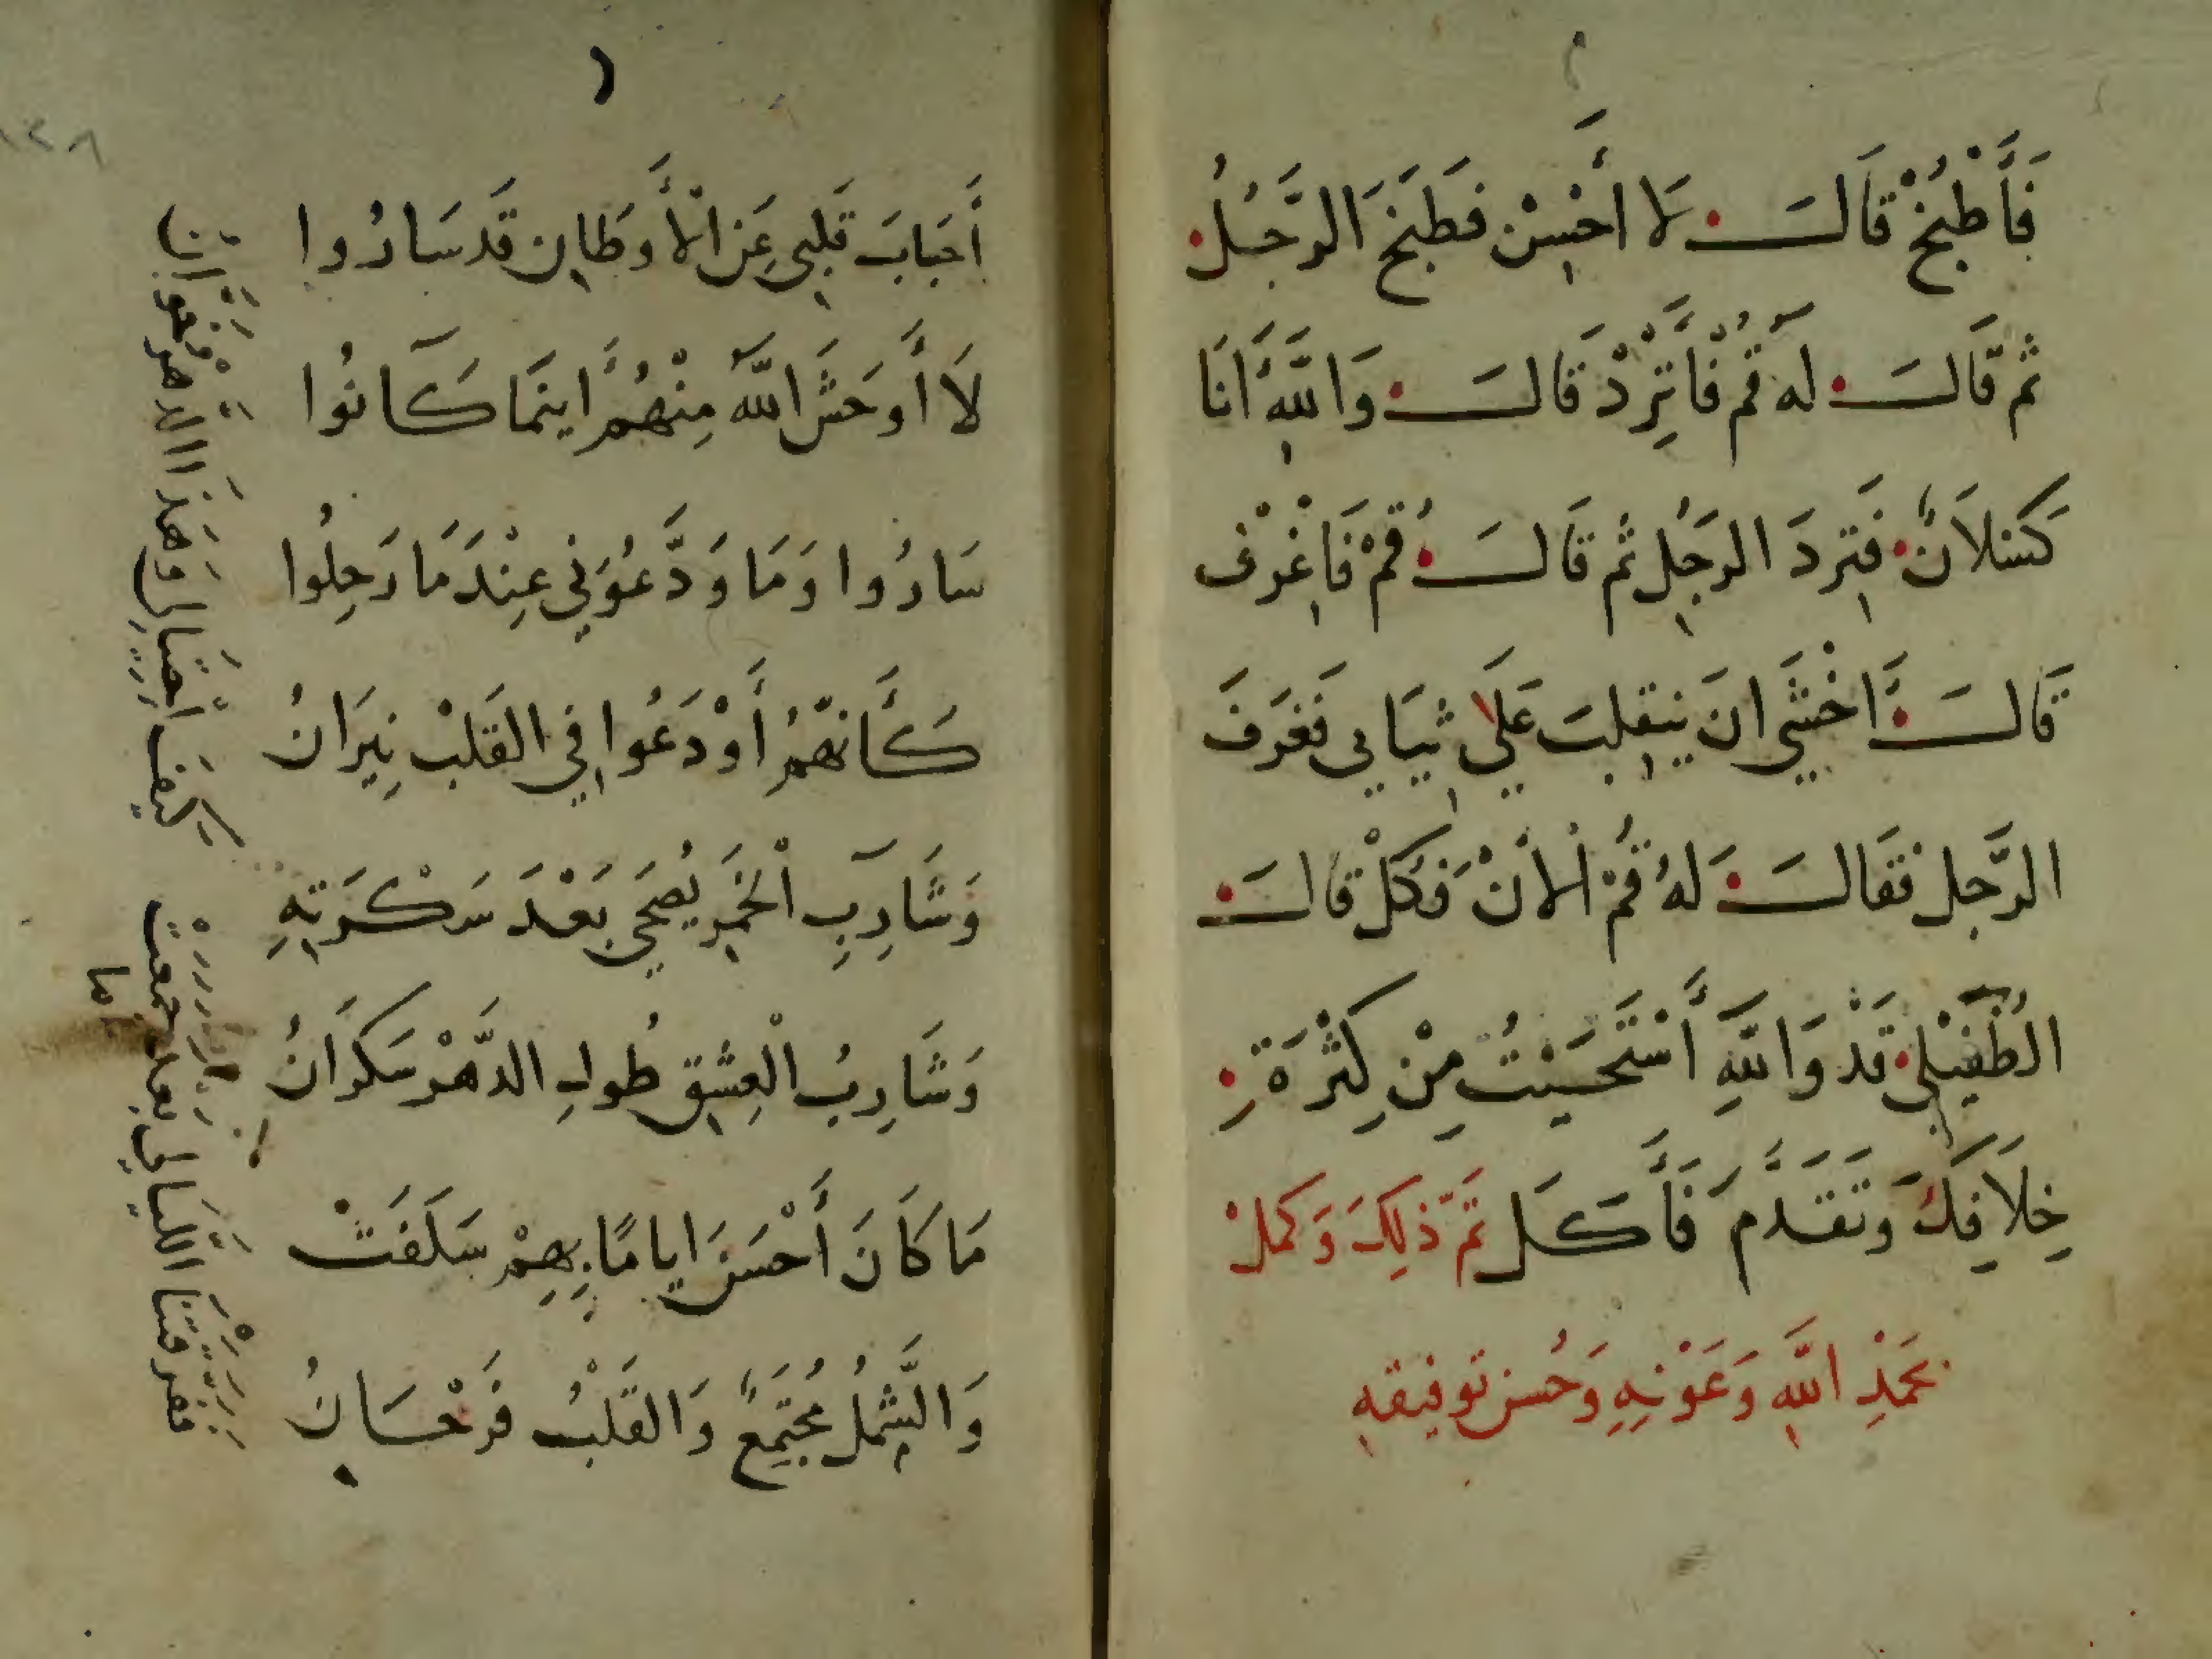 فَأَطْبُخْ قَالَ لَا أُحْسِنْ فَطَبَخَ الرَّجُلُ
ثُمَّ قَالَ لَهُ قُمْ فَأَتْرِدْ قَالَ وَاللهِ أَنَا
كَسْلَانٌ فَتَرَدَ الرَجُلِ ثُم قَالَ قُمْ فَاغْرِفْ
قَالَ أَخْشَي ان يَنقلِبَ عَلَي ثِيَابي فَغَرَفَ
الرَّجل فقَالَ لهُ قُمْ الأَنْ فَكُلْ قَالَ
الطُفَيْلي قَدْ وَاللَّهِ أَسْتَحَيْتُ مِنْ كِثْرَةِ
خِلَافِكَ وَتَقَدَّمَ فَأَكَلَ تَمَّ ذَلِكَ وَكَمُلْ
بحَمْدِ اللَّهِ وَعَوْنِهِ وَحُسْن تَوفِيقهِ
أَحبَابَ قَلبِي عَنِ الْأَوطَانِ قَد سَارُوا
لَا أَوحَشَ اللَّه مِنْهُمُ أَينَمَا كَانُوا
سَارُوا وَمَا وَدَّعُوني عِنْدَ مَا رَحِلُوا
كَأَنهُّمُ أَوْدَعُوا فِي القَلبْ نِيَرَانُ
وَشَارِبِ الْخَمرِ يُصحَى بَعْدَ سَكْرَتِهِ
وَشَارِبُ الْعِشقِ طُولِ الدَّهْرْ سَكرَانُ
مَا كَانَ أَحْسَنَ ايامًا بِهِمْ سَلَفَتْ
وَالشَّمِلُ مُجتَمِعٌ وَالقَلْبُ فَرْحَانُ
كيفَ احْتِيَالِي وَهَذَا الدَّهرُ فَرقنا
بعد جمعت
اللَّيَالِي
ما
١٢٨